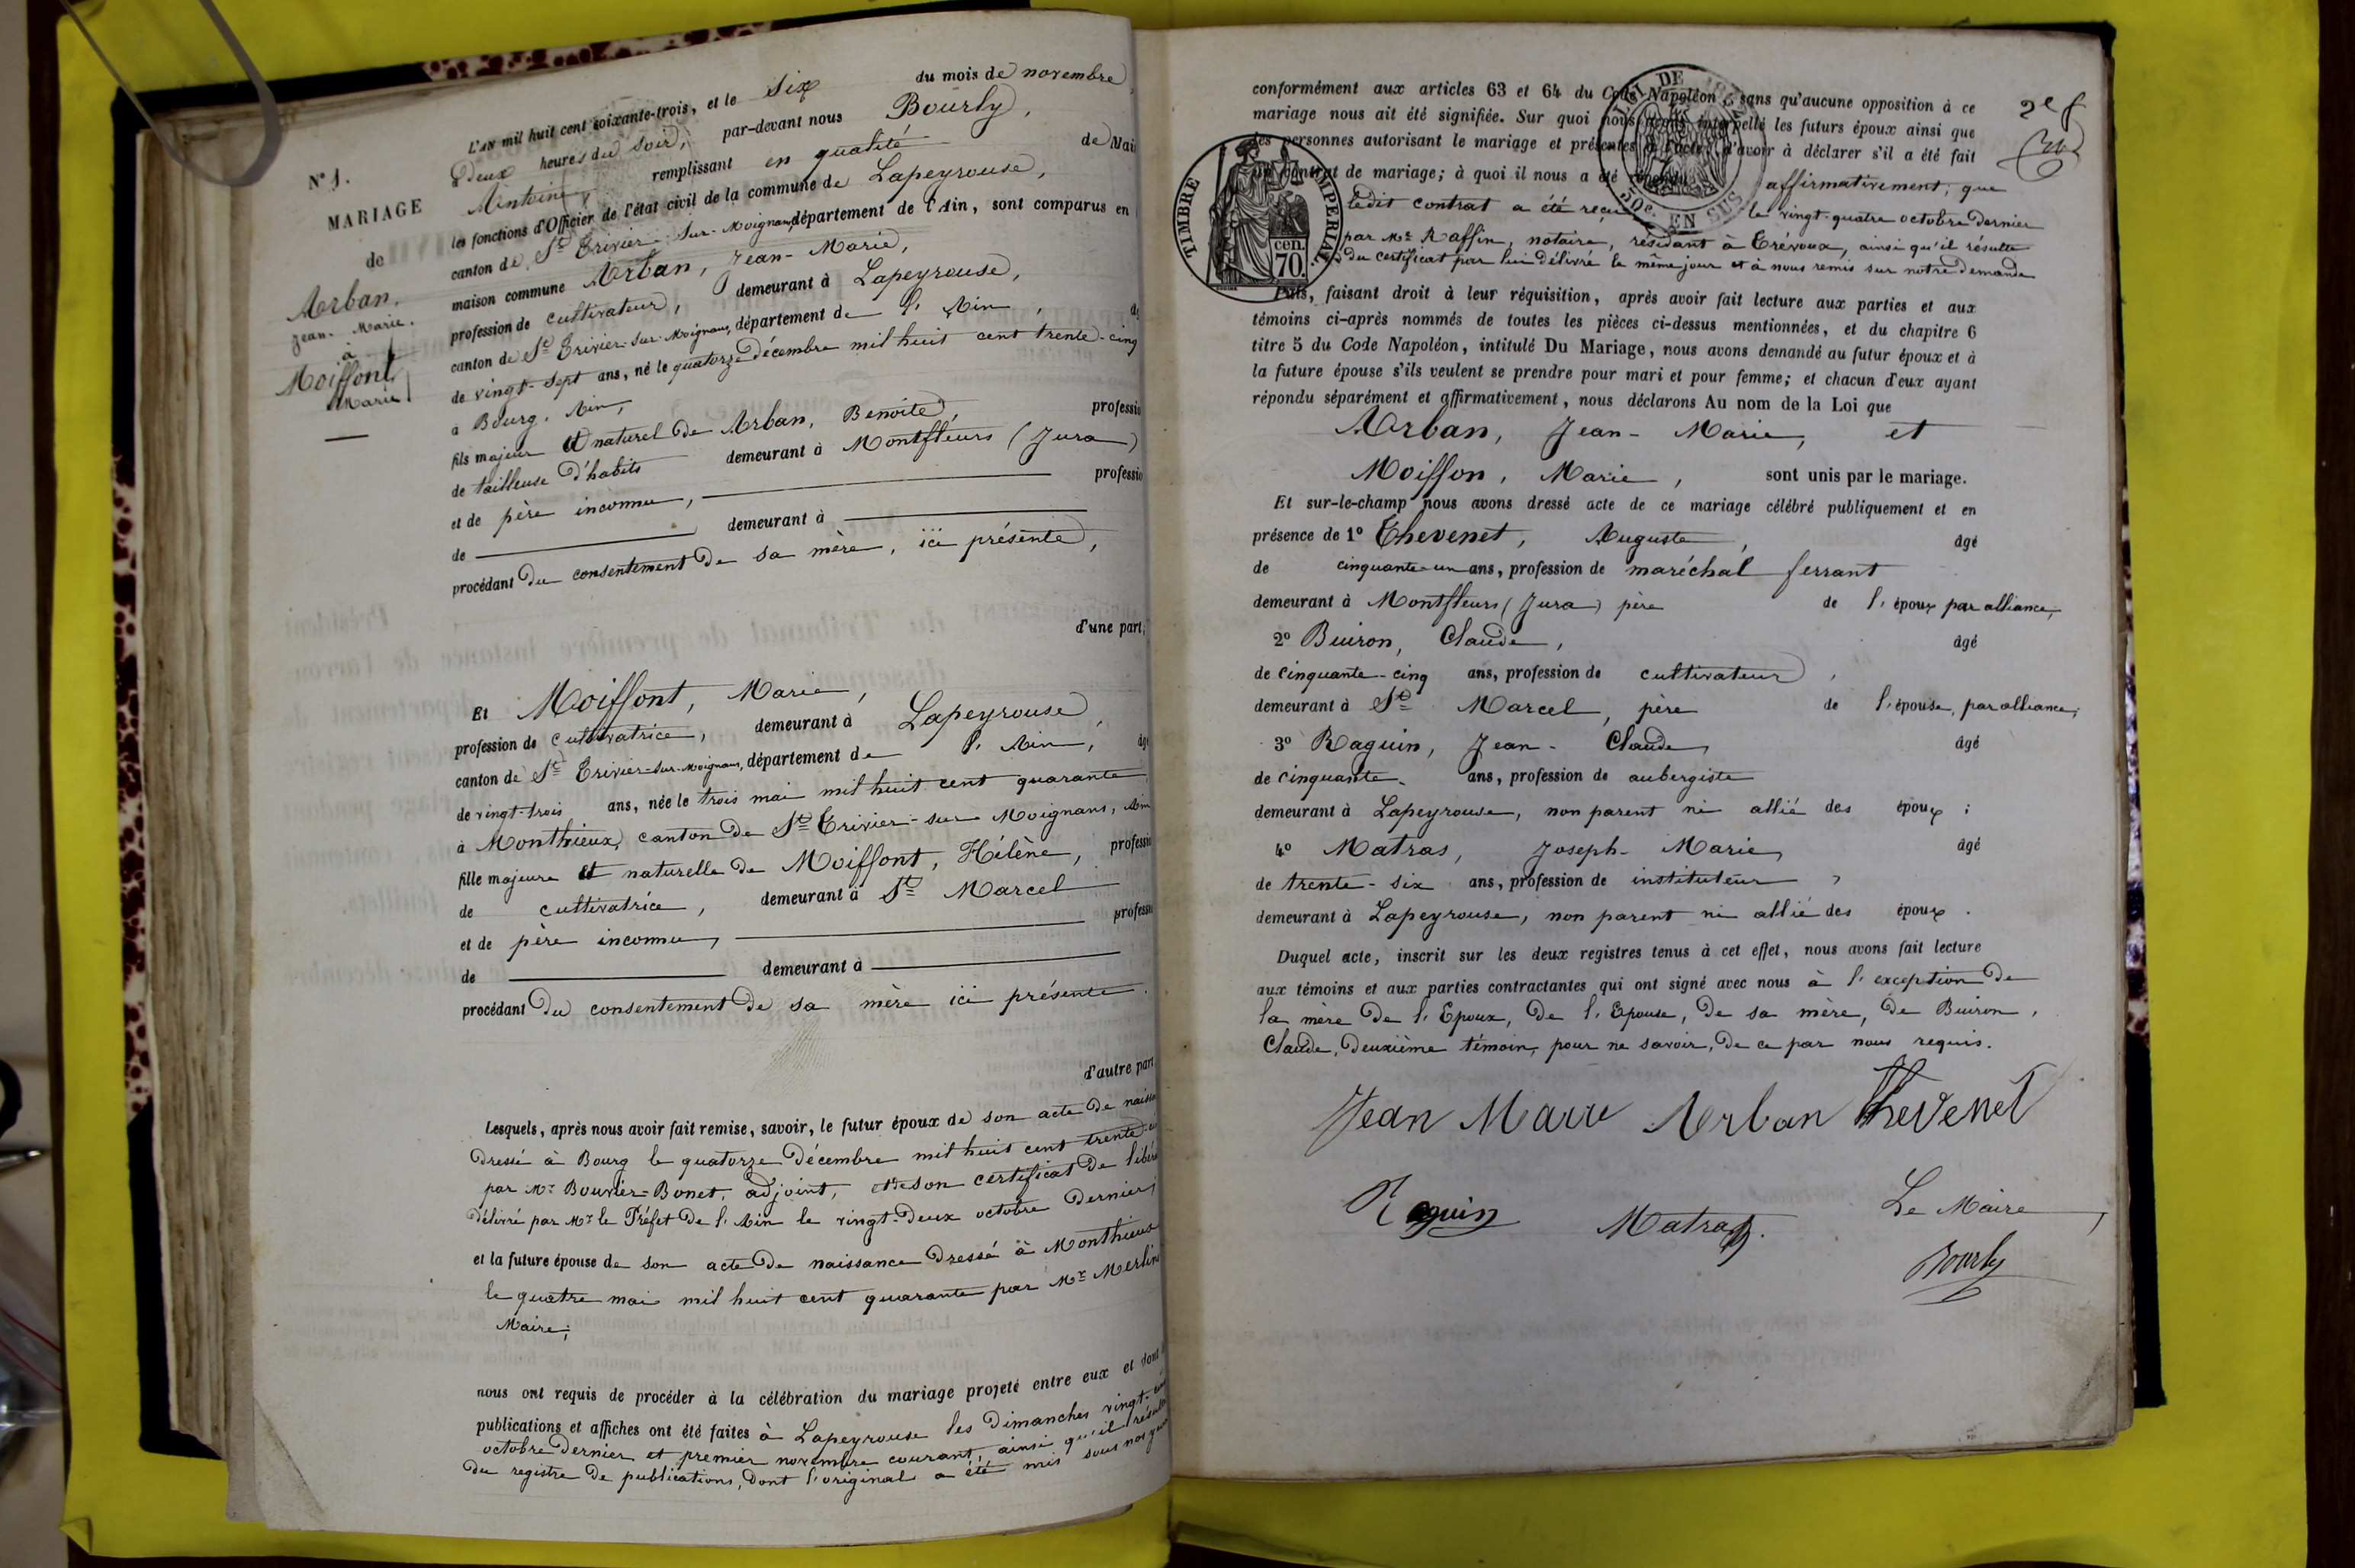 N° 1.
MARIAGE
de
Arban.
Jean-Marie.
à
Moissont
Marie
L'AN mil huit cent soixante-trois, et le six du mois de novembre
Deux heures du soir, par-devant nous Bourly,
Antoine, remplissant en qualité de Mai
les fonctions d'Officier de l'état civil de la commune de Lapeyrouse,
canton de St Trivier-sur-Moignans, département de l'Ain, sont comparus en
maison commune Arban, Jean-Marie,
profession de cultivateur, demeurant à Lapeyrouse,
canton de St Trivier-sur-Moignans, département de l'Ain,
de vingt-sept ans, né le quatorze décembre mil huit cent trente-cinq
à Bourg, Ain,
fils majeur et naturel de Arban, Benoite, professio
de tailleuse d'habits demeurant à Montfleurs (Jura)
et de père inconnu, professio
de demeurant à
procédant du consentement de sa mère, ici présente,
d'une part,
Et Moissont, Marie,
profession de cultivatrice, demeurant à Lapeyrouse,
canton de St Trivier-sur-Moignans, département de l'Ain, âgé
de vingt-trois ans, née le trois mai mil huit cent quarante
à Monthieux, canton de St Trivier-sur-Moignans, Ain
fille majeure et naturelle de Moissont, Hélène, professio
de cultivatrice, demeurant à St Marcel
et de père inconnu, professio
de demeurant à
procédant du consentement de sa mère ici présente.
d'autre part
Lesquels, après nous avoir fait remise, savoir, le futur époux de son acte de naiss
dressé à Bourg le quatorze décembre mil huit cent trente
par Mr Bouvier-Bonet, adjoint, et de son certificat de libér
délivré par Mr le Préfet de l'Ain le vingt-deux octobre dernier;
et la future épouse de son acte de naissance dressé à Monthieux
le quatre mai mil huit cent quarante par Mr Merlin
Maire;
nous ont requis de procéder à la célébration du mariage projeté entre eux et dont
publications et affiches ont été faites à Lapeyrouse les dimanches vingt-
octobre dernier et premier novembre courant, ainsi qu'il résul
du registre de publications, dont l'original a été mis sous nos
conformément aux articles 63 et 64 du Code Napoléon, sans qu'aucune opposition à ce
mariage nous ait été signifiée. Sur quoi nous avons interpellé les futurs époux ainsi que
les personnes autorisant le mariage et présentes à l'acte, d'avoir à déclarer s'il a été fait
un contrat de mariage; à quoi il nous a été répondu affirmativement, que
ledit contrat a été reçu le vingt-quatre octobre dernier
par Me Raffin, notaire, résidant à Trévoux, ainsi qu'il résulte
du certificat par lui délivré le même jour et à nous remis sur notre demande
Puis, faisant droit à leur réquisition, après avoir fait lecture aux parties et aux
témoins ci-après nommés de toutes les pièces ci-dessus mentionnées, et du chapitre 6
titre 5 du Code Napoléon, intitulé Du Mariage, nous avons demandé au futur époux et à
la future épouse s'ils veulent se prendre pour mari et pour femme; et chacun d'eux ayant
répondu séparément et affirmativement, nous déclarons Au nom de la Loi que
Arban, Jean-Marie, et
Moisson, Marie, sont unis par le mariage.
Et sur-le-champ nous avons dressé acte de ce mariage célébré publiquement et en
présence de 1° Thevenet, Auguste, âgé
de cinquante-un ans, profession de maréchal ferrant
demeurant à Montfleurs (Jura) père de l'époux par alliance,
2° Buiron, Claude, âgé
de cinquante-cinq ans, profession de cultivateur,
demeurant à St Marcel, père de l'épouse, par alliance;
3° Raguin, Jean-Claude, âgé
de cinquante ans, profession de aubergiste
demeurant à Lapeyrouse, non parent ni allié des époux;
4° Matras, Joseph-Marie, âgé
de trente-six ans, profession de instituteur,
demeurant à Lapeyrouse, non parent ni allié des époux.
Duquel acte, inscrit sur les deux registres tenus à cet effet, nous avons fait lecture
aux témoins et aux parties contractantes qui ont signé avec nous à l'exception de
la mère de l'Epoux, de l'Epouse, de sa mère, de Buiron,
Claude, deuxième témoin, pour ne savoir, de ce par nous requis.
Jean Marie Arban Thevenet
Raguin Matras. Le Maire
Bourly
TIMBRE IMPERIAL
70 cen.
50c. EN SUS
2e f